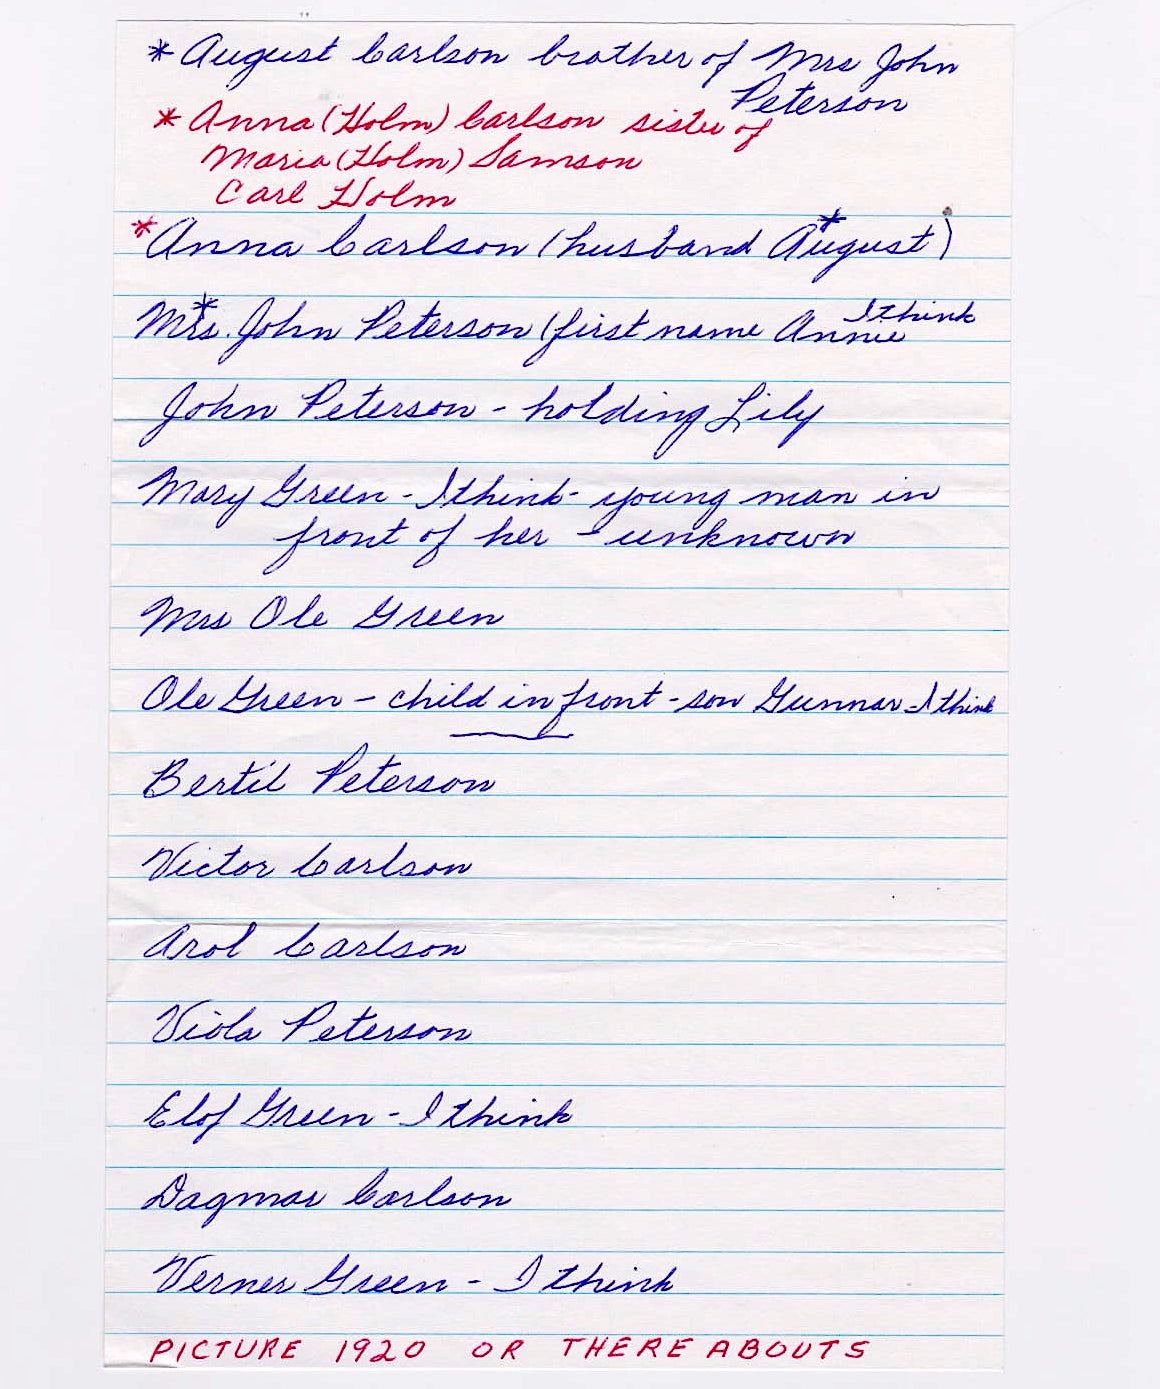 * August Carlson brother of Mrs John
Peterson
* Anna (Holm) Carlson sister of
Maria (Holm) Samson
Carl Holm
* Anna Carlson (husband August*)
Mrs.* John Peterson (first name Annie I think
John Peterson - holding Lily
Mary Green - I think - young man in
front of her - unknown
Mrs Ole Green
Ole Green - child in front - son Gunnar - I think
Bertil Peterson
Victor Carlson
Arol Carlson
Viola Peterson
Elof Green - I think
Dagmar Carlson
Verner Green - I think
PICTURE 1920 OR THEREABOUTS